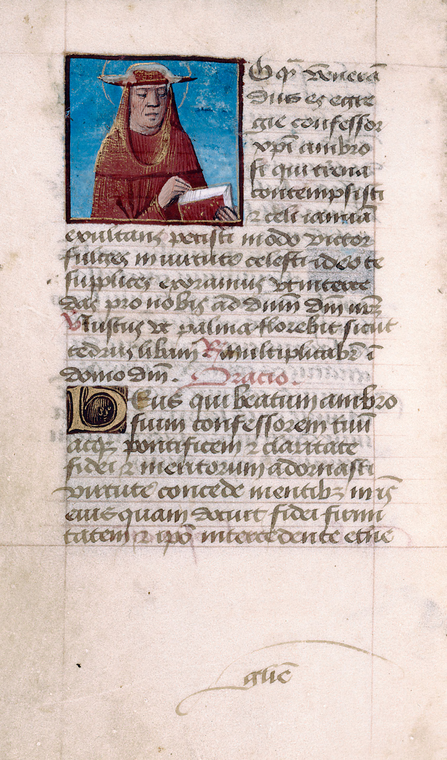 O qr Venerā
dius es egre
gie confessor
xpī ambro
si qui terrena
contempsisti
⁊ celi ianuā
exultans petisti modo victor
fulges in virtute celesti ideo te
supplices exoramus vt interce
das pro nobis ad dnm dm nrz
Vustus vt palma florebit sicut
cedrus libani R multiplicabr ī
domo dm. Oracio.
Deus qui beatum ambro
sium confessorem tuū
atqz pontificem ⁊ claritate
fidei ⁊ meritorum adornasti
virtute concede mentibz nr̄is
eius quam docuit fidei firmi
tatem ⁊ ipō intercedente